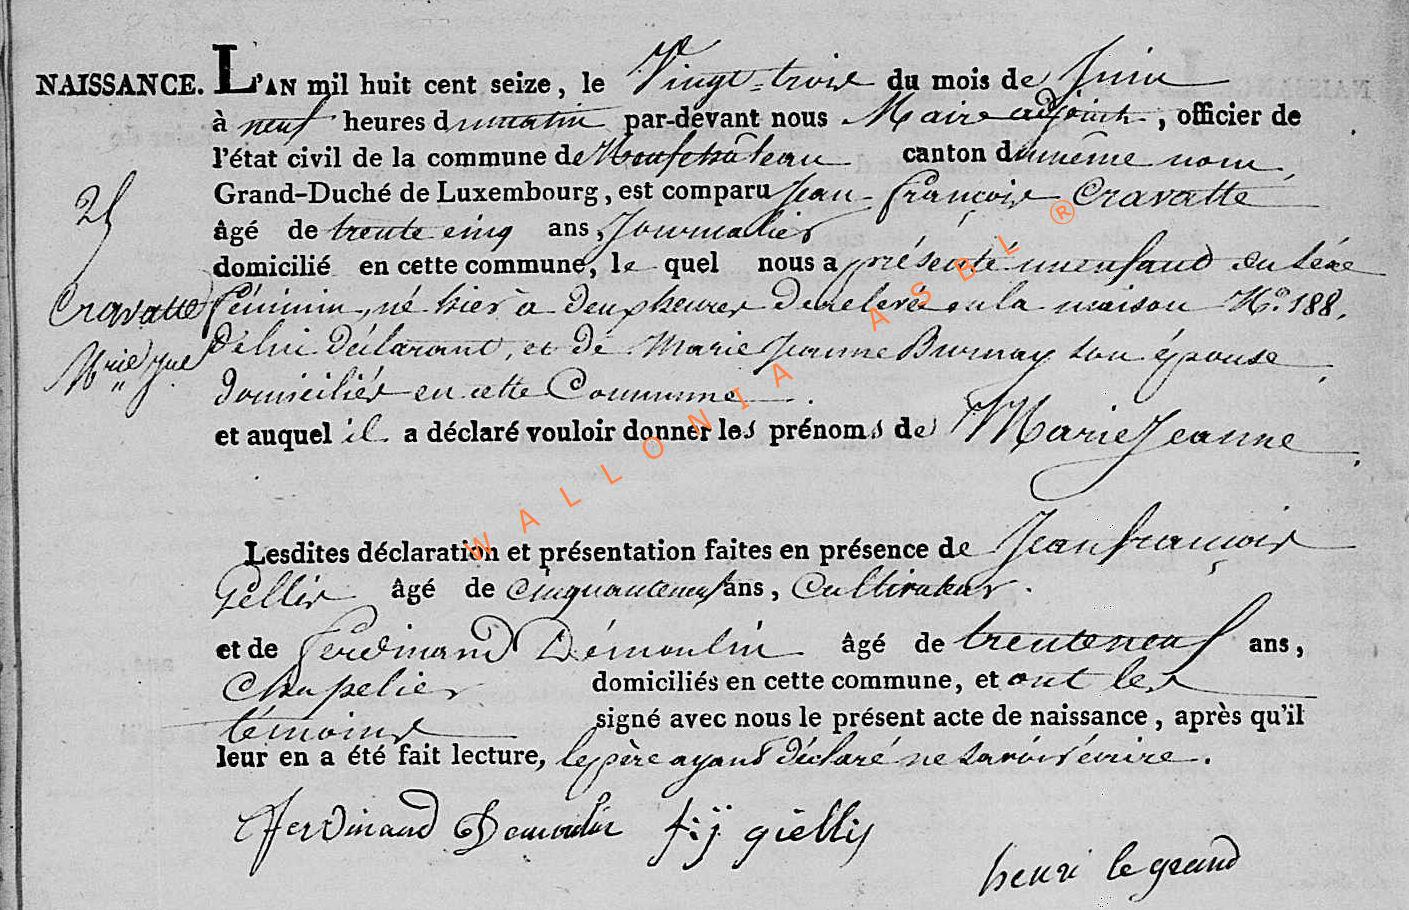 NAISSANCE. L'AN mil huit cent seize, le Vingt-trois du mois de Juin
à neuf heures du matin par-devant nous Maire adjoint, officier de
l'état civil de la commune de Neufchâteau canton du même nom,
Grand-Duché de Luxembourg, est comparu Jean-françois Cravatte
âgé de trente cinq ans, Journalier
domicilié en cette commune, le quel nous a présenté un enfant du séxe
féminin, né hier à deux heures de relevée en la maison No. 188.
de lui déclarant, et de Marie Jeanne Burnay son épouse,
domiciliés en cette Commune.
et auquel il a déclaré vouloir donner les prénoms de Marie Jeanne.
25
Cravatte
Mrie Jne
Lesdites déclaration et présentation faites en présence de Jean françois
Gellis âgé de cinquante neuf ans, Cultivateur.
et de ferdinand Démoulin âgé de trente neuf ans,
Chapelier domiciliés en cette commune, et ont les
témoins signé avec nous le présent acte de naissance, après qu'il
leur en a été fait lecture, le père ayant déclaré ne savoir écrire.
ferdinand Demoulin f:j giellis
henri legrand
WALLONIA ASBL ®